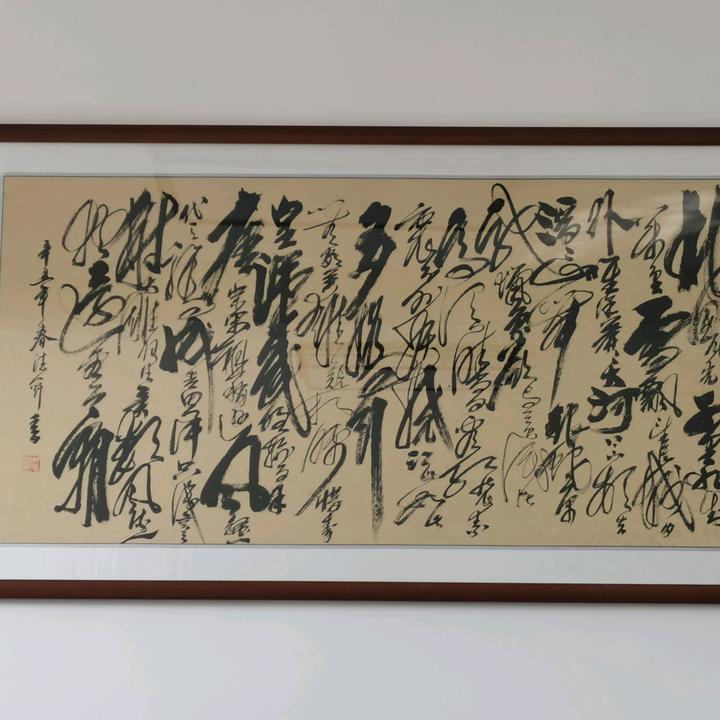 北国风光千里冰封
万里雪飘望长城内
外惟余莽莽大河上下顿失
滔滔山舞银蛇原驰
蜡象欲与天公试比
高须晴日看红装素
裹分外妖娆江山如此
多娇引
无数英雄竞折腰惜秦
皇汉武略输文采
唐宗宋祖稍逊风骚一
代天骄成吉思汗只识弯弓
射大雕俱往矣数风流人
物还看今朝
辛丑年春 书